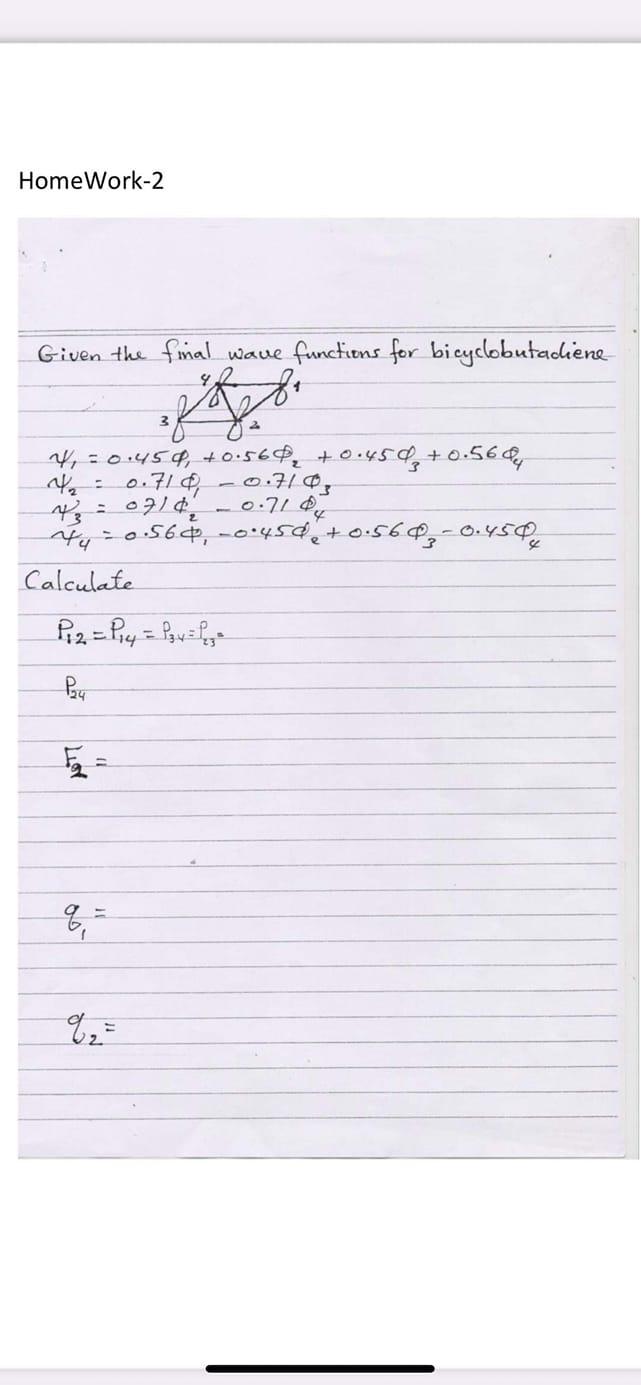 HomeWork-2
Given the final wave functions for bicyclobutadiene
4 1
3 2
Ψ₁ = 0.45Φ₁ + 0.56Φ₂ + 0.45Φ₃ + 0.56Φ₄
Ψ₂ = 0.71Φ₁ - 0.71Φ₃
Ψ₃ = 071Φ₂ - 0.71Φ₄
Ψ₄ = 0.56Φ₁ - 0.45Φ₂ + 0.56Φ₃ - 0.45Φ₄
Calculate
P₁₂ = P₁₄ = P₃₄ = P₂₃ =
P₂₄
F₂ =
q₁ =
q₂ =